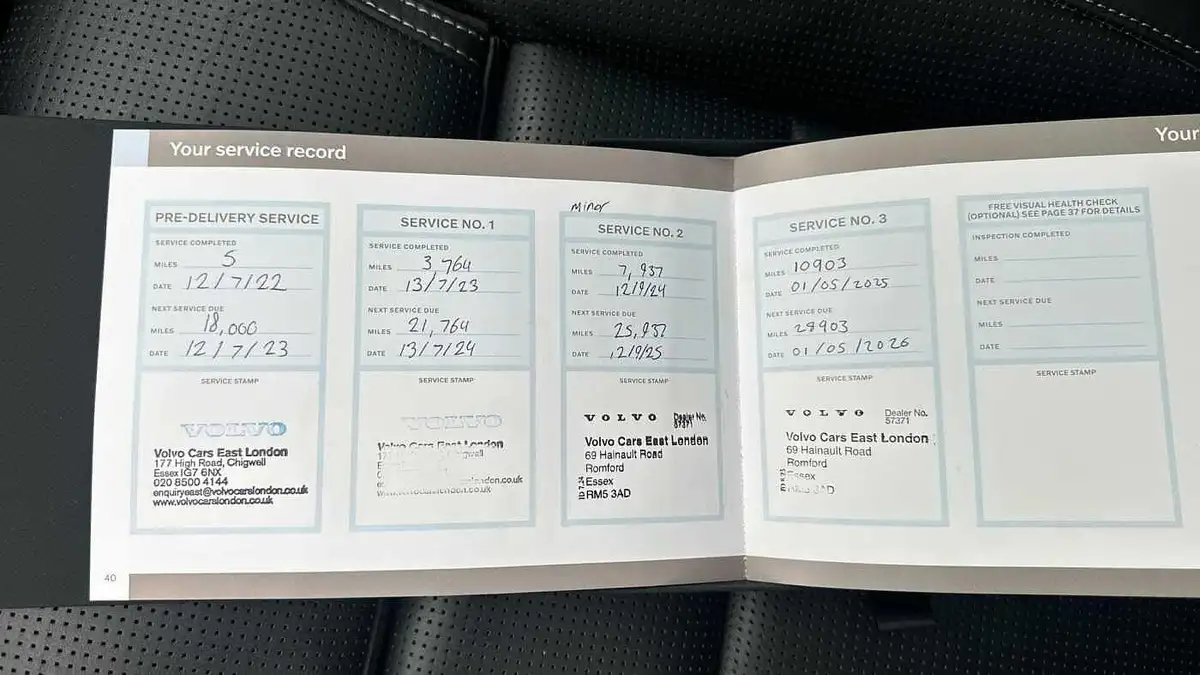 Your service record
PRE-DELIVERY SERVICE
SERVICE COMPLETED
MILES 5
DATE 12/7/22
NEXT SERVICE DUE
MILES 18,000
DATE 12/7/23
SERVICE STAMP
VOLVO
Volvo Cars East London
177 High Road, Chigwell
Essex IG7 6NX
020 8500 4144
enquiryeast@volvocarslondon.co.uk
www.volvocarslondon.co.uk
SERVICE NO. 1
SERVICE COMPLETED
MILES 3,764
DATE 13/7/23
NEXT SERVICE DUE
MILES 21,764
DATE 13/7/24
SERVICE STAMP
VOLVO
Volvo Cars East London
Minor
SERVICE NO. 2
SERVICE COMPLETED
MILES 7,937
DATE 12/9/24
NEXT SERVICE DUE
MILES 25,937
DATE 12/9/25
SERVICE STAMP
VOLVO Dealer No.
57371
Volvo Cars East London
69 Hainault Road
Romford
Essex
RM5 3AD
40
Your
SERVICE NO. 3
SERVICE COMPLETED
MILES 10903
DATE 01/05/2025
NEXT SERVICE DUE
MILES 28903
DATE 01/05/2026
SERVICE STAMP
VOLVO Dealer No.
57371
Volvo Cars East London
69 Hainault Road
Romford
Essex
3AD
FREE VISUAL HEALTH CHECK
(OPTIONAL) SEE PAGE 37 FOR DETAILS
INSPECTION COMPLETED
MILES
DATE
NEXT SERVICE DUE
MILES
DATE
SERVICE STAMP